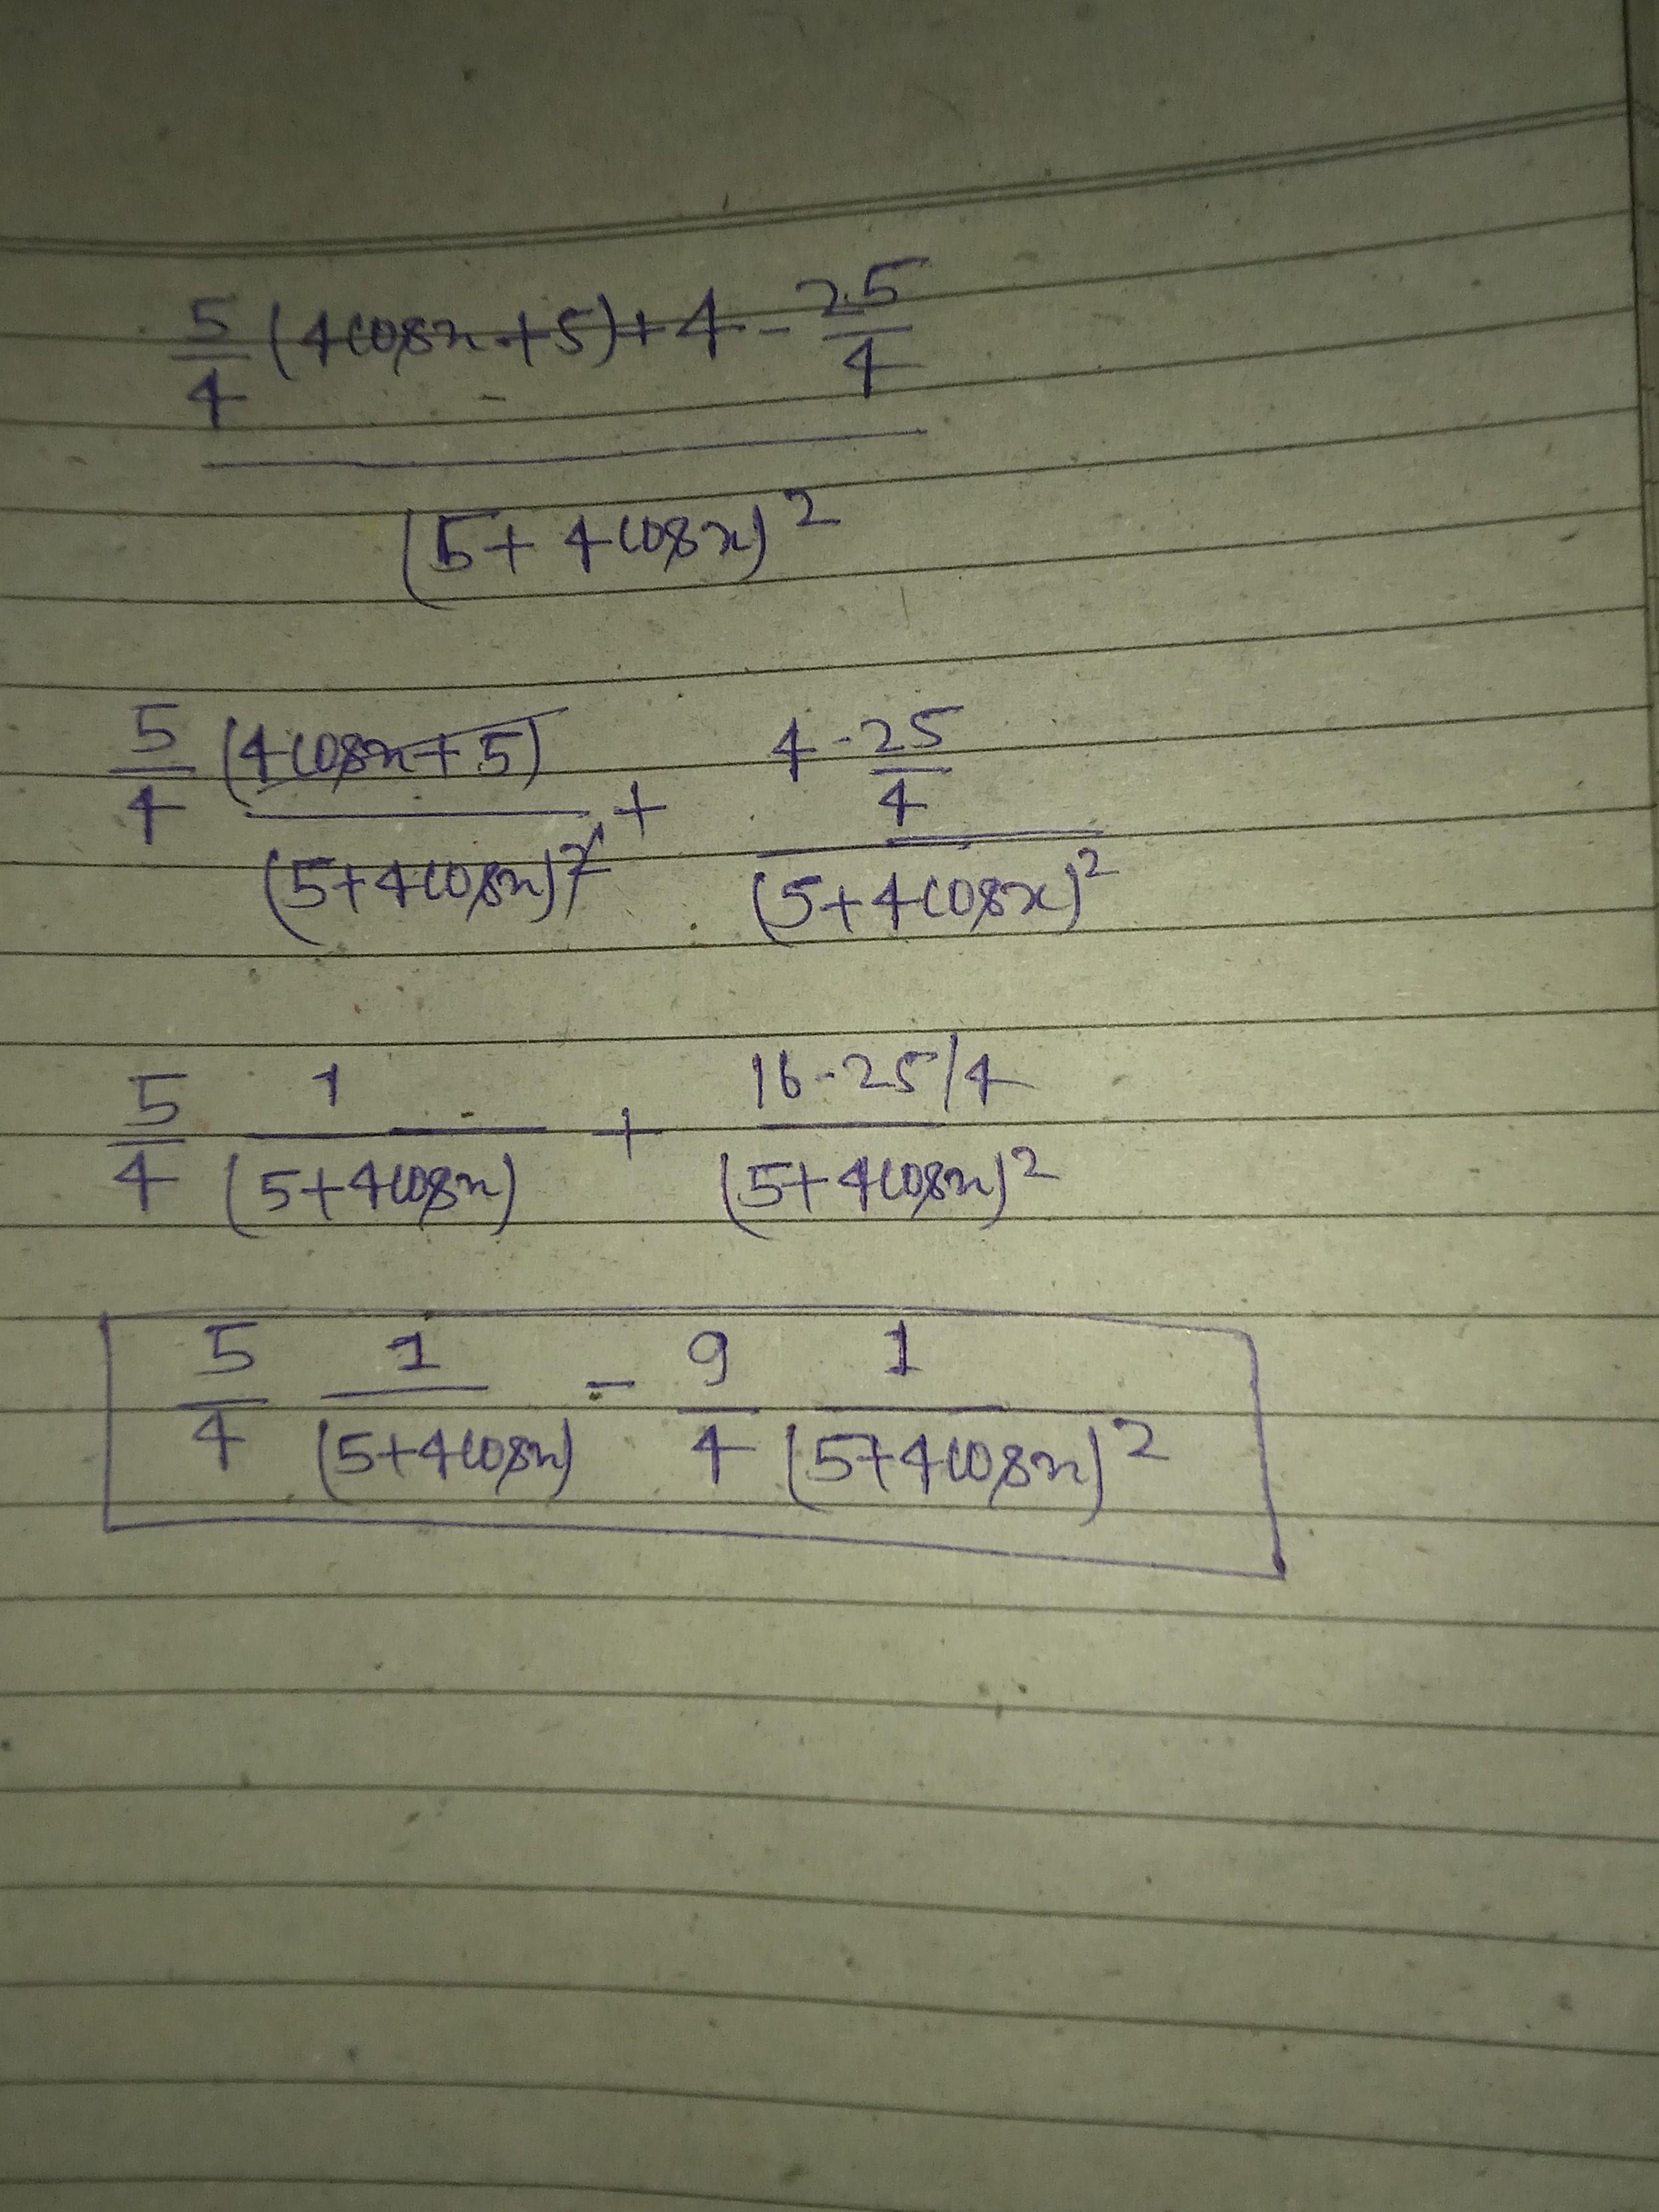 5/4 (4cosx+5)+4-25/4
(5+4cosx)²
5/4 (4cosx+5)/(5+4cosx)² + 4-25/4/(5+4cosx)²
5/4 1/(5+4cosx) + 16-25/4/(5+4cosx)²
5/4 1/(5+4cosx) - 9/4 1/(5+4cosx)²